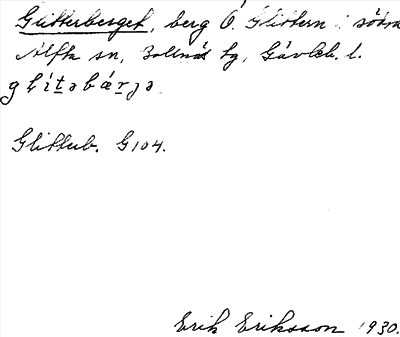 Glitterberget, berg Ö. Glittern i södra
Alfta sn, Bollnäs tg, Gävleb. l.
glítəbárjə.
Glitterb. G104.
Erik Eriksson 1930.